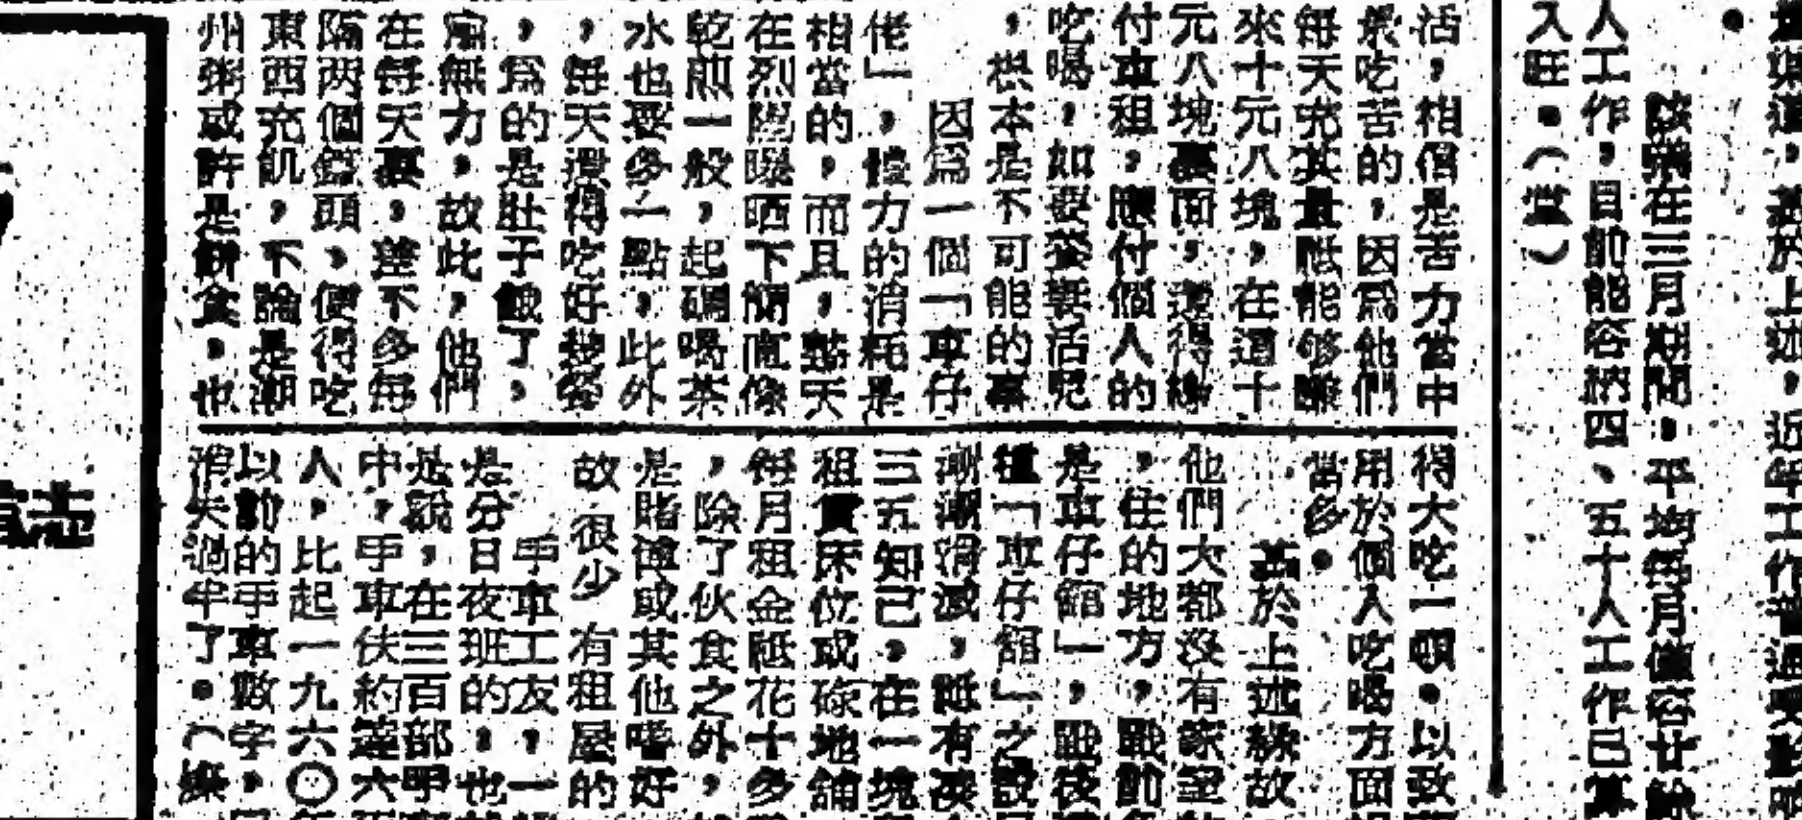 述，近年工作普通
該輛在三月期間，平均每月僅容廿餘
人工作，目前能容納四、五十人工作已算
入旺。（堂）
活，相信是苦力當中
最吃苦的，因爲他們
每天充其量祗能够賺
來十元八塊，在這十
元八塊裏面，還得
付車租，應付個人的
吃喝，如要養妻活兒
，根本是不可能的事
因爲一個「車仔
佬」，體力的消耗是
相當的，而且，整天
在烈陽曝晒下簡直像
乾煎一般，起碼喝茶
水也要多一點，此外
，每天還得吃好幾餐
，爲的是肚子餓了，
無力，故此，他們
在每天裏，差不多每
隔两個鐘頭，便得吃
東西充飢，不論是潮
州粥或許是餅食，也
得大吃一頓。以致
用於個人吃喝方面
當多。
基於上述緣故
他們大都沒有家室
，住的地方，戰前
是車仔館」，戰後
種「車仔館」之設
漸漸消滅，祗有湊
三五知己，在一塊
租賃床位或碌地舖
每月租金祗花十多
，除了伙食之外，
是賭博或其他嗜好
故很少有租屋的
手車工友，一
是分日夜班的，也
是說，在三百部手
中，手車伕約莲六
人，比起一九六〇
以前的手車數字，
消失過半了。（